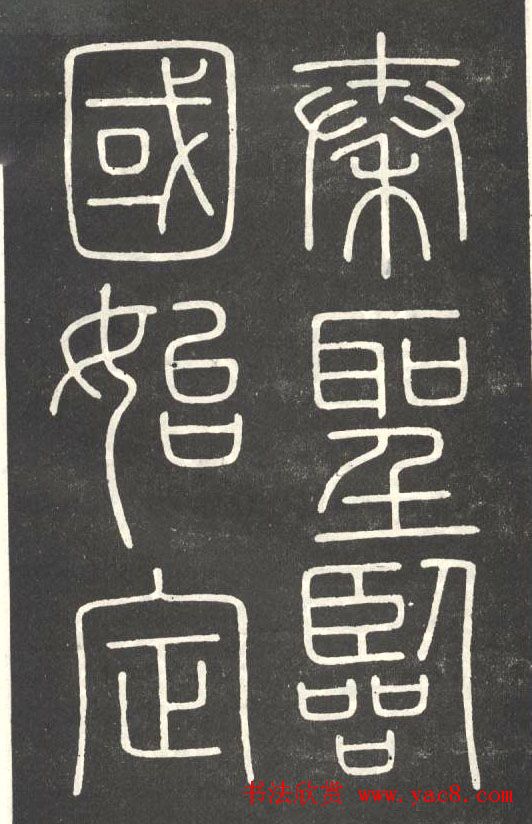 秦聖臨
國始定
书法欣赏 www.yac8.com